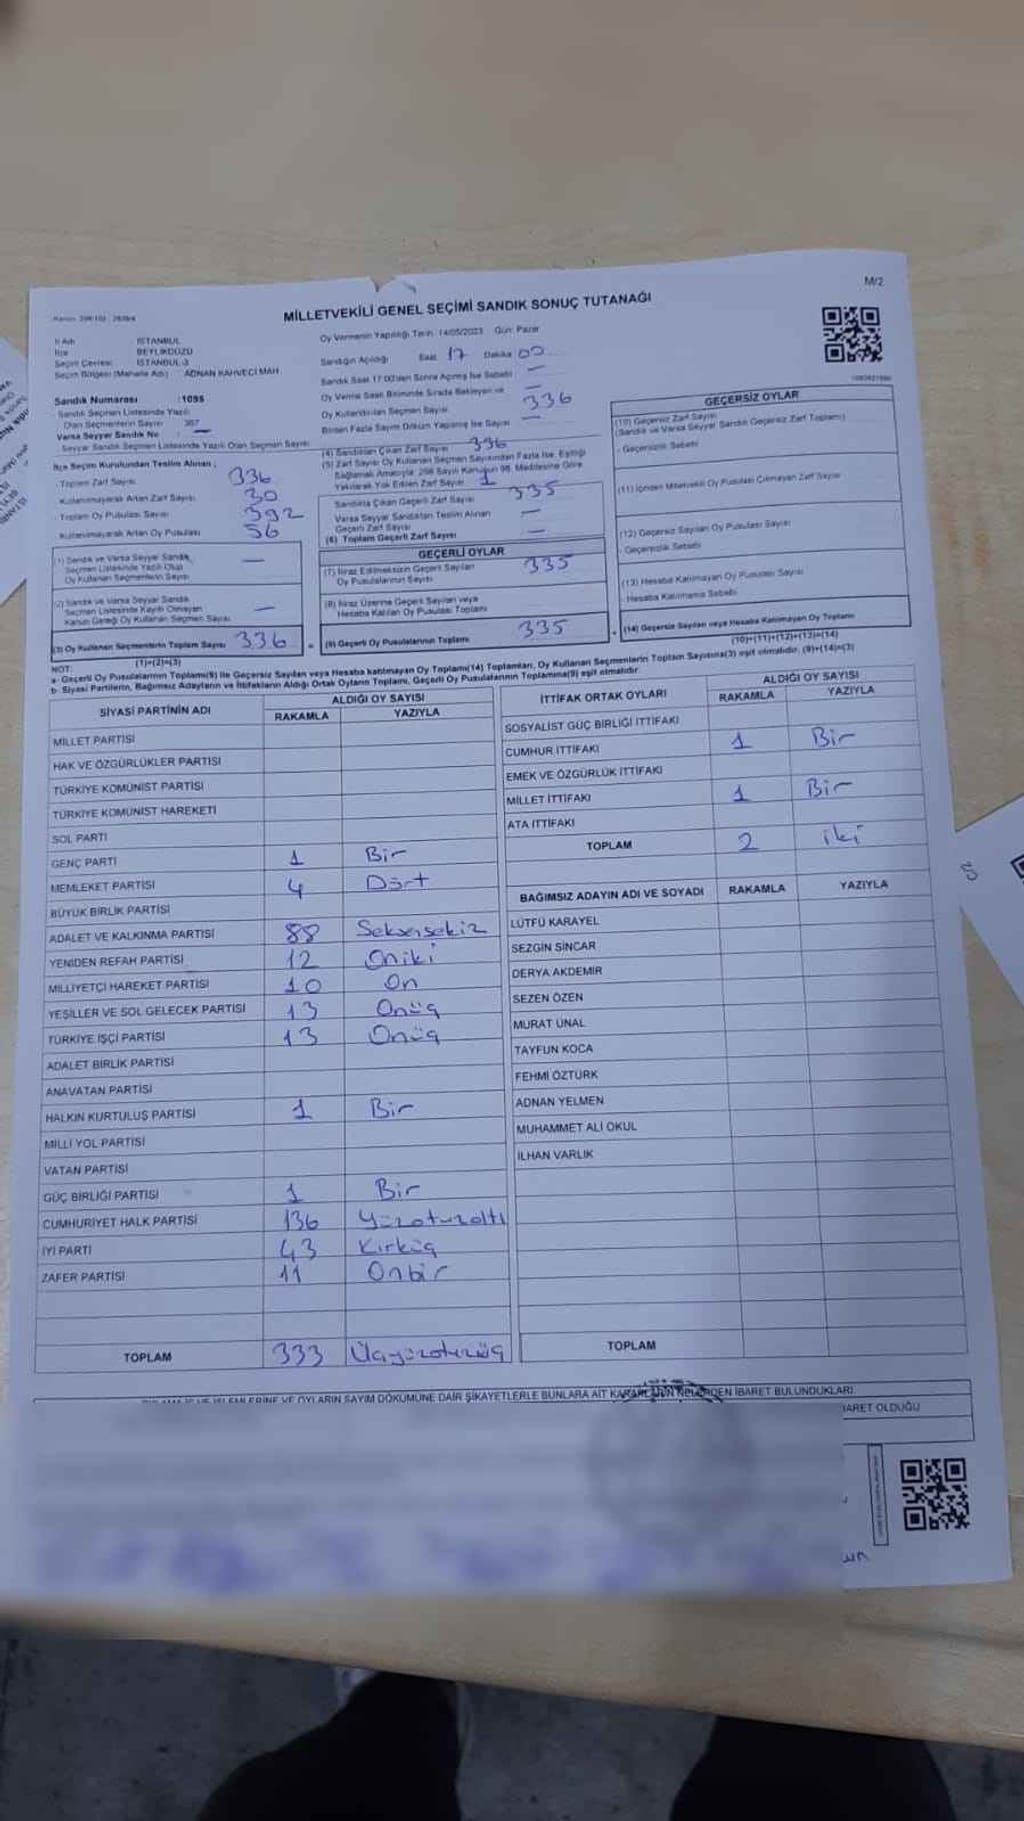 M/2
MİLLETVEKİLİ GENEL SEÇİMİ SANDIK SONUÇ TUTANAĞI
İl Adı İSTANBUL
İlçe BEYLİKDÜZÜ
Seçim Çevresi İSTANBUL-3
Seçim Bölgesi (Mahalle Adı) ADNAN KAHVECİ MAH.
Sandık Numarası :1095
Sandık Seçmen Listesinde Yazılı
Olan Seçmenlerin Sayısı 367
Varsa Seyyar Sandık No : —
Seyyar Sandık Seçmen Listesinde Yazılı Olan Seçmen Sayısı
İlçe Seçim Kurulundan Teslim Alınan ;
Toplam Zarf Sayısı 336
Kullanılmayarak Artan Zarf Sayısı 30
Toplam Oy Pusulası Sayısı 392
Kullanılmayarak Artan Oy Pusulası 56
(1) Sandık ve Varsa Seyyar Sandık
Seçmen Listesinde Yazılı Olup
Oy Kullanan Seçmenlerin Sayısı —
(2) Sandık ve Varsa Seyyar Sandık
Seçmen Listesinde Kayıtlı Olmayan
Kanun Gereği Oy Kullanan Seçmen Sayısı —
(3) Oy Kullanan Seçmenlerin Toplam Sayısı 336
(1)+(2)=(3)
Oy Vermenin Yapıldığı Tarih: 14/05/2023 Gün: Pazar
Sandığın Açıldığı Saat 17 Dakika 00
Sandık Saat 17:00'den Sonra Açılmış İse Sebebi —
Oy Verme Saati Bitiminde Sırada Bekleyen ve —
Oy Kullandırılan Seçmen Sayısı 336
Birden Fazla Sayım Döküm Yapılmış İse Sayısı —
(4) Sandıktan Çıkan Zarf Sayısı 336
(5) Zarf Sayısı Oy Kullanan Seçmen Sayısından Fazla İse, Eşitliği
Sağlamak Amacıyla, 298 Sayılı Kanunun 98. Maddesine Göre
Yakılarak Yok Edilen Zarf Sayısı 1
Sandıkta Çıkan Geçerli Zarf Sayısı 335
Varsa Seyyar Sandıktan Teslim Alınan
Geçerli Zarf Sayısı —
(6) Toplam Geçerli Zarf Sayısı —
GEÇERLİ OYLAR
(7) İtiraz Edilmeksizin Geçerli Sayılan
Oy Pusulalarının Sayısı 335
(8) İtiraz Üzerine Geçerli Sayılan veya
Hesaba Katılan Oy Pusulası Toplamı
= (9) Geçerli Oy Pusulalarının Toplamı 335
GEÇERSİZ OYLAR
(10) Geçersiz Zarf Sayısı
(Sandık ve Varsa Seyyar Sandık Geçersiz Zarf Toplamı)
- Geçersizlik Sebebi
(11) İçinden Milletvekili Oy Pusulası Çıkmayan Zarf Sayısı
(12) Geçersiz Sayılan Oy Pusulası Sayısı
- Geçersizlik Sebebi
(13) Hesaba Katılmayan Oy Pusulası Sayısı
- Hesaba Katılmama Sebebi
+ (14) Geçersiz Sayılan veya Hesaba Katılmayan Oy Toplamı
(10)+(11)+(12)+(13)=(14)
NOT:
a- Geçerli Oy Pusulalarının Toplamı(9) ile Geçersiz Sayılan veya Hesaba katılmayan Oy Toplamı(14) Toplamları, Oy Kullanan Seçmenlerin Toplam Sayısına(3) eşit olmalıdır. (9)+(14)=(3)
b- Siyasi Partilerin, Bağımsız Adayların ve İttifakların Aldığı Ortak Oyların Toplamı, Geçerli Oy Pusulalarının Toplamına(9) eşit olmalıdır.
SİYASİ PARTİNİN ADI ALDIĞI OY SAYISI
RAKAMLA YAZIYLA
MİLLET PARTİSİ
HAK VE ÖZGÜRLÜKLER PARTİSİ
TÜRKİYE KOMÜNİST PARTİSİ
TÜRKİYE KOMÜNİST HAREKETİ
SOL PARTİ
GENÇ PARTİ 1 Bir
MEMLEKET PARTİSİ 4 Dört
BÜYÜK BİRLİK PARTİSİ
ADALET VE KALKINMA PARTİSİ 88 Seksensekiz
YENİDEN REFAH PARTİSİ 12 Oniki
MİLLİYETÇİ HAREKET PARTİSİ 10 On
YEŞİLLER VE SOL GELECEK PARTİSİ 13 Onüç
TÜRKİYE İŞÇİ PARTİSİ 13 Onüç
ADALET BİRLİK PARTİSİ
ANAVATAN PARTİSİ
HALKIN KURTULUŞ PARTİSİ 1 Bir
MİLLİ YOL PARTİSİ
VATAN PARTİSİ
GÜÇ BİRLİĞİ PARTİSİ 1 Bir
CUMHURİYET HALK PARTİSİ 136 Yüzotuzaltı
İYİ PARTİ 43 Kırküç
ZAFER PARTİSİ 11 Onbir
TOPLAM 333 Üçyüzotuzüç
İTTİFAK ORTAK OYLARI ALDIĞI OY SAYISI
RAKAMLA YAZIYLA
SOSYALİST GÜÇ BİRLİĞİ İTTİFAKI
CUMHUR İTTİFAKI 1 Bir
EMEK VE ÖZGÜRLÜK İTTİFAKI
MİLLET İTTİFAKI 1 Bir
ATA İTTİFAKI
TOPLAM 2 iki
BAĞIMSIZ ADAYIN ADI VE SOYADI RAKAMLA YAZIYLA
LÜTFÜ KARAYEL
SEZGİN SİNCAR
DERYA AKDEMİR
SEZEN ÖZEN
MURAT ÜNAL
TAYFUN KOCA
FEHMİ ÖZTÜRK
ADNAN YELMEN
MUHAMMET ALİ OKUL
İLHAN VARLIK
TOPLAM
OYLARIN SAYIM DÖKÜMÜNE DAİR ŞİKAYETLERLE BUNLARA AİT KARARLARIN NELERDEN İBARET BULUNDUKLARI
İBARET OLDUĞU